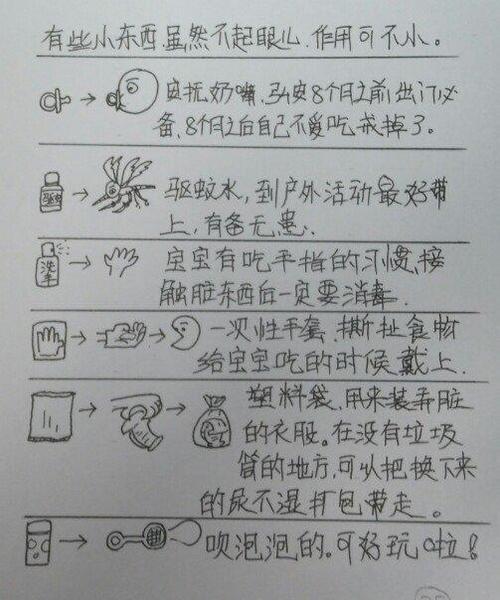 有些小东西虽然不起眼儿,作用可不小。
安抚奶嘴,弘安8个月之前出门必
备,8个月之后自己不爱吃戒掉了。
驱蚊
驱蚊水,到户外活动最好带
上,有备无患。
洗手
宝宝有吃手指的习惯,接
触脏东西后一定要消毒.
一次性手套,撕扯食物
给宝宝吃的时候戴上.
塑料袋,用来装弄脏
的衣服。在没有垃圾
筒的地方,可以把换下来
的尿不湿打包带走。
吹泡泡的。可好玩啦!